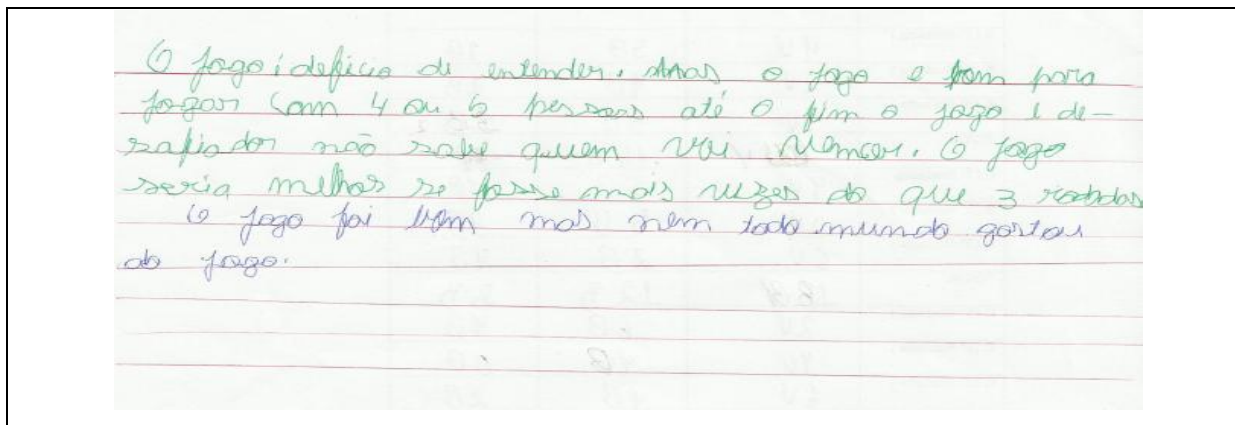 O jogo i deficio di entender. Mas o jogo e bom para
jogar com 4 ou 6 pessoas até o fim o jogo e de-
safiador não sabe quem vai vencer. O jogo
seria melhor se fosse mais vezes do que 3 rodadas
O jogo foi bom mas nem todo mundo gostou
do jogo.